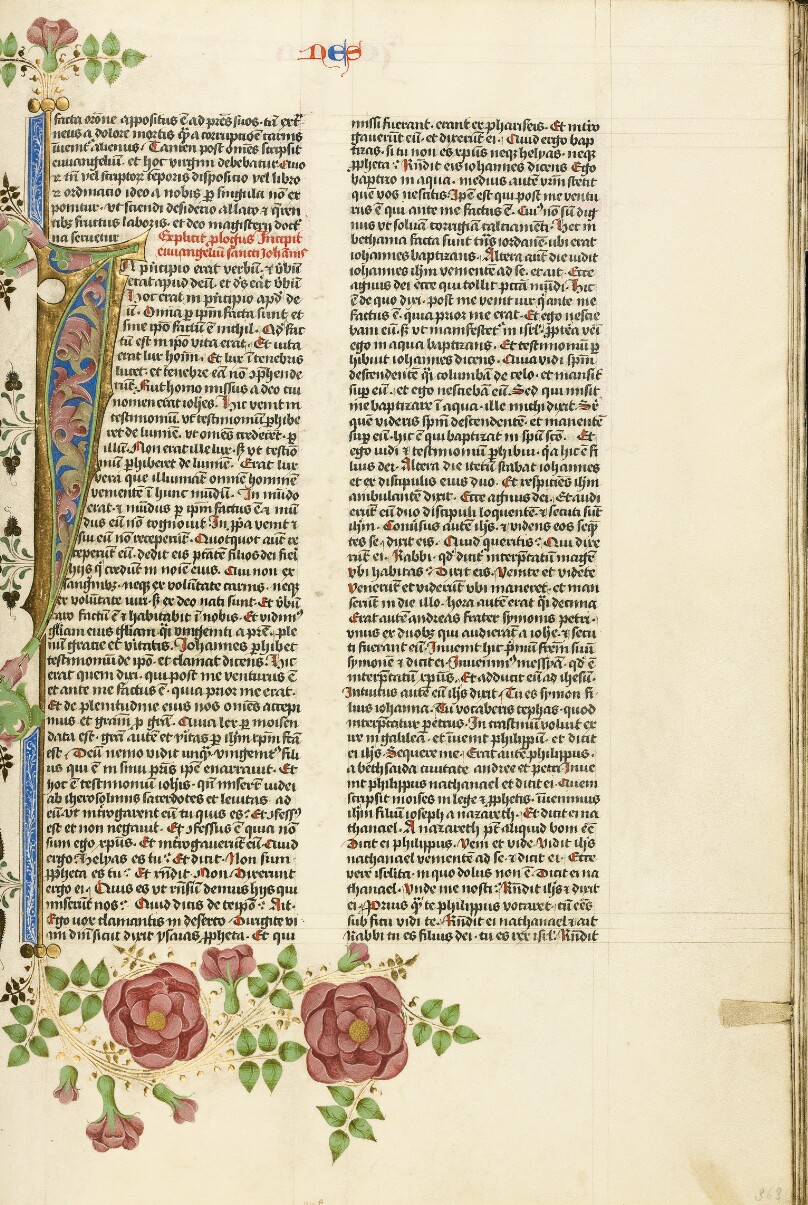 nes
facta orōne appositus ē ad prēs suos. tā extͣ
neus a dolore mortis qͣ a corruptiōe carnis
īuenit᷑ alienus. Tamen post om̄es scripsit
euuangeliū. et hoc virgini debebatur. Quo
ꝝ tn̄ vel scriptoꝝ tēporis dispositio vel libroꝝ
ꝝ ordinatio ideo a nobis ꝑ singula nō ex
ponitur. vt sciendi desiderio allato ⁊ q̄ren
tibꝫ fructus laboris. et deo magisterij doctͥ
na seruetur Explicit ꝓlogus Incipit
euuangeliū sancti Iohānis
IN prīcipio erat verbū. ⁊ v̄bū
erat apud deū. et dꝰs erat v̄bū
Hoc erat in prīcipio apd̄ de
ū. Omīa ꝑ ipm̄ facta sunt et
sine ipō factū ē nichil. Qd̄ fac
tū est in ipō vita erat. Et vita
erat lux hoīm. Et lux ī tenebris
lucet. et tenebre eā nō ꝯphende
rūt. Fuit homo missus a deo cui
nomen erat ioħes. Hic venit in
testimoniū. vt testimoniū ꝑhibe
ret de lumīe. vt om̄es crederēt ꝑ
illū. Non erat ille lux. sꝫ vt testio
niū ꝑhiberet de lumīe. Erat lux
vera que illumīat om̄ē hominē
veniente ī hunc mūdū. In mūdo
erat. ⁊ mūdus ꝑ ipm̄ factus ē ⁊ mū
dus eū nō cognouit. In ꝓpͥa venit ⁊
sui eū nō receperūt. Quotquot autē re
ceperūt eū. dedit eis ptātē filios dei fieri
hijs qͥ credūt in noīe eius. Qui non ex
sangͥnibꝫ. neqꝫ ex volūtate carnis. neqꝫ
ex volūtate viri. sꝫ ex deo nati sunt. Et v̄bū
caro factū ē ⁊ habitabit ī nobis. Et vidimꝰ
gl̄iam eius gl̄iam qͣi vnigeniti a prē. ple
nū gracie et vitatis. Iohannes ꝑhibet
testimoniū de ipō. et clamat dicens. Hic
erat quem dixi. qui post me venturus ē
et ante me factus ē. quia prior me erat.
Et de plenitudine eius nos om̄es accepi
mus et graciā ꝓ grā. Quia lex ꝑ moisen
data est. grā autē et vitas ꝑ iħm xp̄m fcā
est. Deū nemo vidit unqͣ. vnigenitꝰ fili
us qui ē in sinu pr̄is ipē enarrauit. Et
hoc ē testimoniū ioħis. qn̄ miserūt iudei
ab iherosolimis sacerdotes et leuitas. ad
eū. vt introgarent eū tu quis es. Et ꝯfessꝰ
est et non negauit. Et ꝯfessus ē quia nō
sum ego xp̄us. Et introgauerūt eū. Quid
ergo. Helyas es tu? Et dicit. Non sum.
ꝓpheta es tu? Et rn̄dit. Non. Dixerunt
ergo ei. Quis es vt rn̄sū demus hijs qui
miserūt nos? Quid dicis de teipō? Ait.
Ego vox clamantis in deserto. Dirigite vi
am dn̄i. sicut dixit ysaias ꝓpheta. Et qui
missi fuerant. erant ex phariseis. Et intro
gauerūt eū. et dixerūt ei. Quid ergo bap
tizas. si tu non es xp̄us neqꝫ helyas. neqꝫ
ꝓpheta? Rn̄dit eis iohannes dicens Ego
baptizo in aqua. medius autē vrm̄ stetit
quē vos nescitis. Ipē est qui post me ventu
rus ē qui ante me factus ē. Cuiꝰ nō sū dig
nus vt soluā corrigiā calciamēti. Hec in
bethania facta sunt trn̄s iordanē. ubi erat
iohannes baptizans. Altera autē die vidit
iohannes iħm venientē ad se. et ait. Ecce
agnus dei ecce qui tollit pctā mūdi. Hic
ē de quo dixi. post me venit vir qͥ ante me
factus ē. quia prior me erat. Et ego nescie
bam eū. sꝫ vt manifestet᷑ in isrl̄. ꝓpterea veni
ego in aqua baptizans. Et testimoniū ꝑ
hibuit iohannes dicens. Quia vidi spm̄
descendentē qͣi columbā de celo. et mansit
sup eū. et ego nesciebā eū. Sed qui misit
me baptizare ī aqua. ille michi dixit. Sꝑ
quē videris spm̄ descendentē. et manentē
sup eū. hic ē qui baptizat in spū scō. Et
ego vidi ⁊ testimoniū ꝑhibui. qͥa hic ē fi
lius dei. Altera die iterū stabat iohannes
et ex discipulis eius duo. Et respiciēs iħm
ambulantē dixit. Ecce agnus dei. Et audi
erūt eū duo discipuli loquentē ⁊ secuti sūt
iħm. Conūsus autē iħs. ⁊ videns eos seqͣ̄
tes se. dixit eis. Quid queritis? Qui dixe
rūt ei. Rabbi. qd̄ dicit᷑ interp̄tatū magr̄.
vbi habitas? Dixit eis. Venite et videte
Venerūt et viderūt vbi maneret. et man
serūt in die illo. hora autē erat qͣi decima
Erat autē andreas frater symonis petri.
vnus ex duobꝫ qui audierāt a ioħe. ⁊ secu
ti fuerant eū. Inuenit hic pͥmū frēm suū
symonē ⁊ dicit ei. Inuenimꝰ messyā. qd̄ ē
interp̄tatū xp̄us. Et adduxit eū ad ihesū.
Intuitus autē eū iħs dixit. Tu es symon fi
lius iohanna. Tu vocaberis cephas. quod
interp̄tatur petrus. In crastinū voluit ex
ire in galileā. et inuenit philippū. et dicit
ei iħs. Sequere me. Erat autē philippus.
a bethsaida ciuitate andree et petri. Inue
nit philippus nathanael et dicit ei. Quem
scripsit moises in lege ⁊ ꝓphetis. inuenimus
iħm filiū ioseph a nazareth. Et dicit ei na
thanael. A nazareth pt̄ aliquid boni ēē
Dicit ei philippus. Veni et vide. Vidit iħs
nathanael venientē ad se. ⁊ dicit ei. Ecce
vere isrl̄ita. in quo dolus non ē. Dicit ei na
thanael. Vnde me nosti? Rn̄dit iħs ⁊ dixit
ei. Prius qͣ te philippus vocaret. cū eēs
sub ficu vidi te. Rn̄dit ei nathanael ⁊ ait
Rabbi tu es filius dei. tu es rex isrl̄. Rn̄dit
363